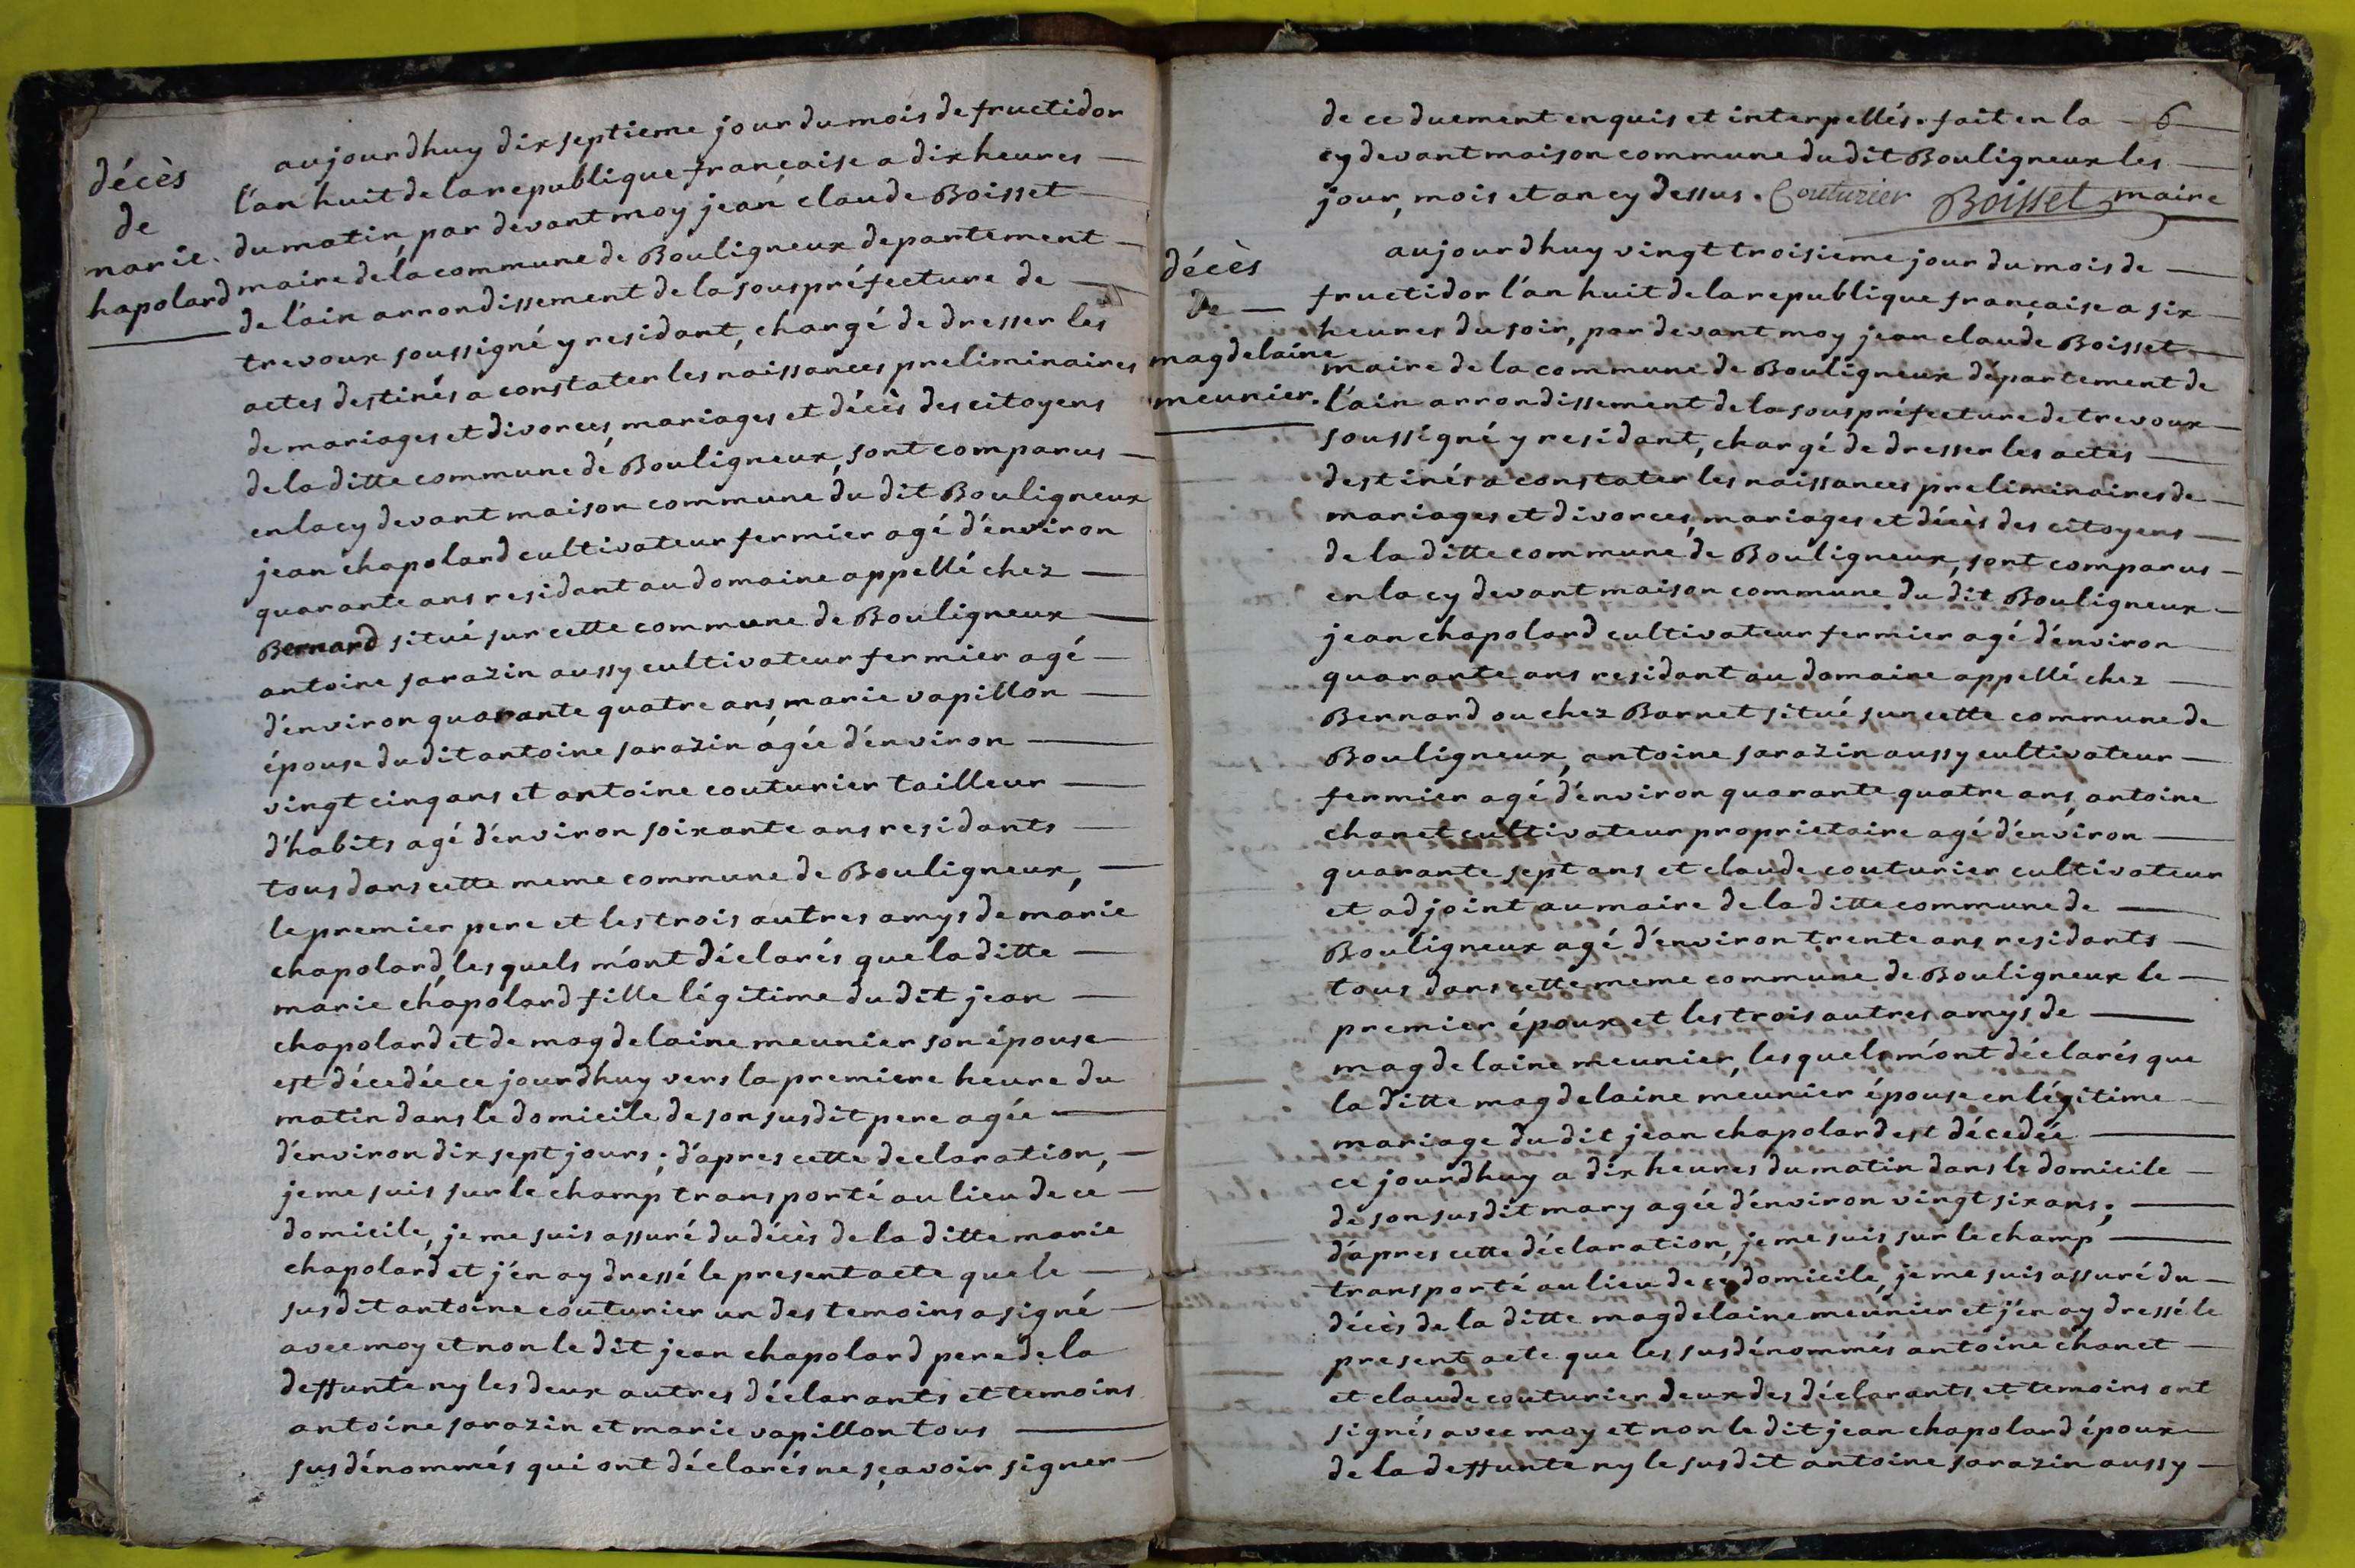 décès
de
marie
chapolard
aujourdhuy dix septieme jour du mois de fructidor
l'an huit de la republique française a dix heures
du matin, par devant moy jean claude Boisset
maire de la commune de Bouligneux departement
de l'ain arrondissement de la souspréfecture de
trevoux soussigné y residant, chargé de dresser les
actes destinés a constater les naissances preliminaires
de mariages et divorces, mariages et décès des citoyens
de la ditte commune de Bouligneux, sont comparus
en la cy devant maison commune du dit Bouligneux
jean chapolard cultivateur fermier agé d'énviron
quarante ans residant au domaine appellé chez
Bernard situé sur cette commune de Bouligneux
antoine sarazin aussy cultivateur fermier agé
d'énviron quarante quatre ans, marie vapillon
épouse du dit antoine sarazin agée d'énviron
vingt cinq ans et antoine couturier tailleur
d'habits agé d'énviron soixante ans residants
tous dans cette meme commune de Bouligneux,
le premier pere et les trois autres amys de marie
chapolard, les quels m'ont déclarés que la ditte
marie chapolard fille légitime du dit jean
chapolard et de magdelaine meunier son épouse
est décedée ce jourdhuy vers la premiere heure du
matin dans le domicile de son susdit pere agée
d'énviron dix sept jours; d'apres cette declaration,
je me suis sur le champ transporté au lieu de ce
domicile, je me suis assuré du décès de la ditte marie
chapolard et j'én ay dressé le present acte que le
susdit antoine couturier un des temoins a signé
avec moy et non le dit jean chapolard pere de la
deffunte ny les deux autres déclarants et temoins
antoine sarazin et marie vapillon tous
susdénommés qui ont déclarés ne sçavoir signer
6
de ce duement enquis et interpellés. fait en la
cy devant maison commune du dit Bouligneux les
jour, mois et an cy dessus. Couturier Boisset maire
décès
de
magdelaine
meunier.
aujourdhuy vingt troisieme jour du mois de
fructidor l'an huit de la republique française a six
heures du soir, par devant moy jean claude Boisset
maire de la commune de Bouligneux département de
l'ain arrondissement de la souspréfecture de trevoux
soussigné y residant, chargé de dresser les actes
destinés a constater les naissances preliminaires de
mariages et divorces, mariages et décès des citoyens
de la ditte commune de Bouligneux, sont comparus
en la cy devant maison commune du dit Bouligneux
jean chapolard cultivateur fermier agé d'énviron
quarante ans residant au domaine appellé chez
Bernard ou chez Barnet situé sur cette commune de
Bouligneux, antoine sarazin aussy cultivateur
fermier agé d'énviron quarante quatre ans, antoine
chanet cultivateur proprietaire agé d'énviron
quarante sept ans et claude couturier cultivateur
et adjoint au maire de la ditte commune de
Bouligneux agé d'énviron trente ans residants
tous dans cette meme commune de Bouligneux le
premier époux et les trois autres amys de
magdelaine meunier, les quels m'ont déclarés que
la ditte magdelaine meunier épouse en légitime
mariage du dit jean chapolard est décedée
ce jourdhuy a dix heures du matin dans le domicile
de son susdit mary agée d'énviron vingt six ans;
d'apres cette déclaration, je me suis sur le champ
transporté au lieu de ce domicile, je me suis assuré du
décès de la ditte magdelaine meunier et j'én ay dressé le
present acte que les susdénommés antoine chanet
et claude couturier deux des déclarants et temoins ont
signés avec moy et non le dit jean chapolard époux
de la deffunte ny le susdit antoine sarazin aussy